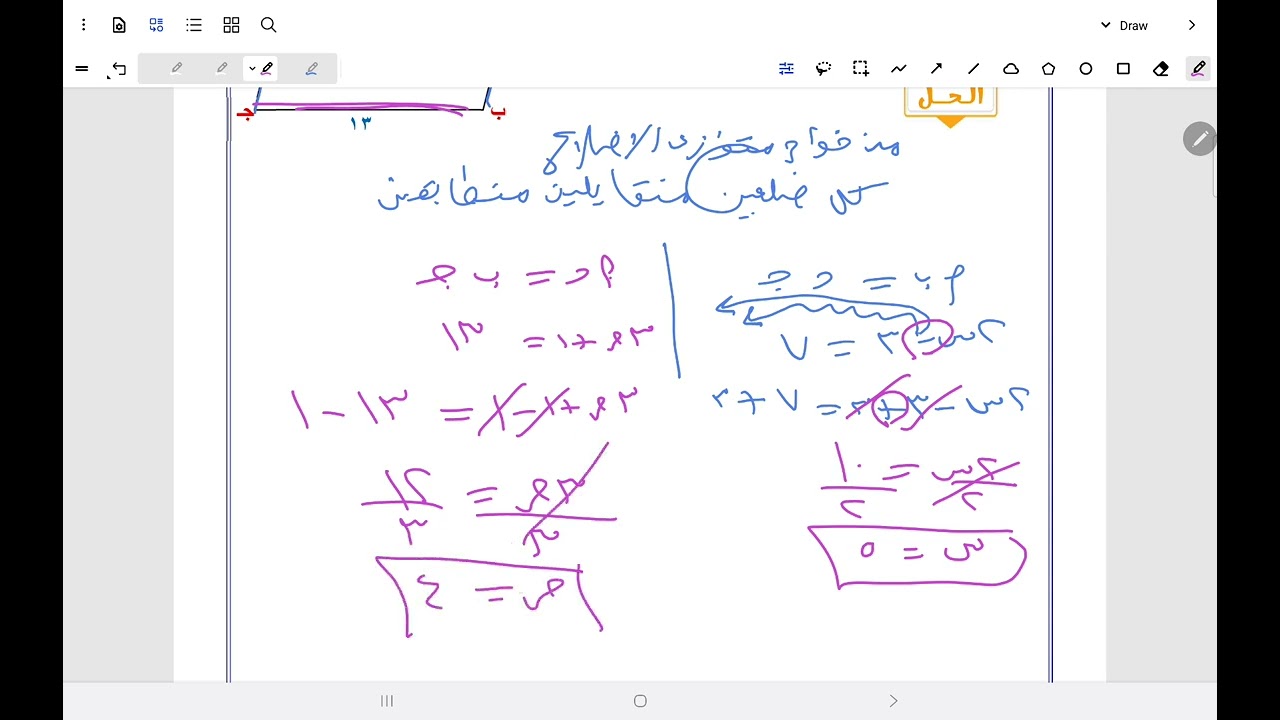 Draw
الحل
جـ
ب
١٣
من خواص متوازى الاضلاع
كل ضلعين متقابلين متطابقين
أب = د جـ
٢س - ٣ = ٧
٢س - ٣ + ٣ = ٧ + ٣
٢س = ١٠
٢ ٢
س = ٥
أد = ب جـ
٣ص + ١ = ١٣
٣ص + ١ - ١ = ١٣ - ١
٣ص = ١٢
٣ ٣
ص = ٤